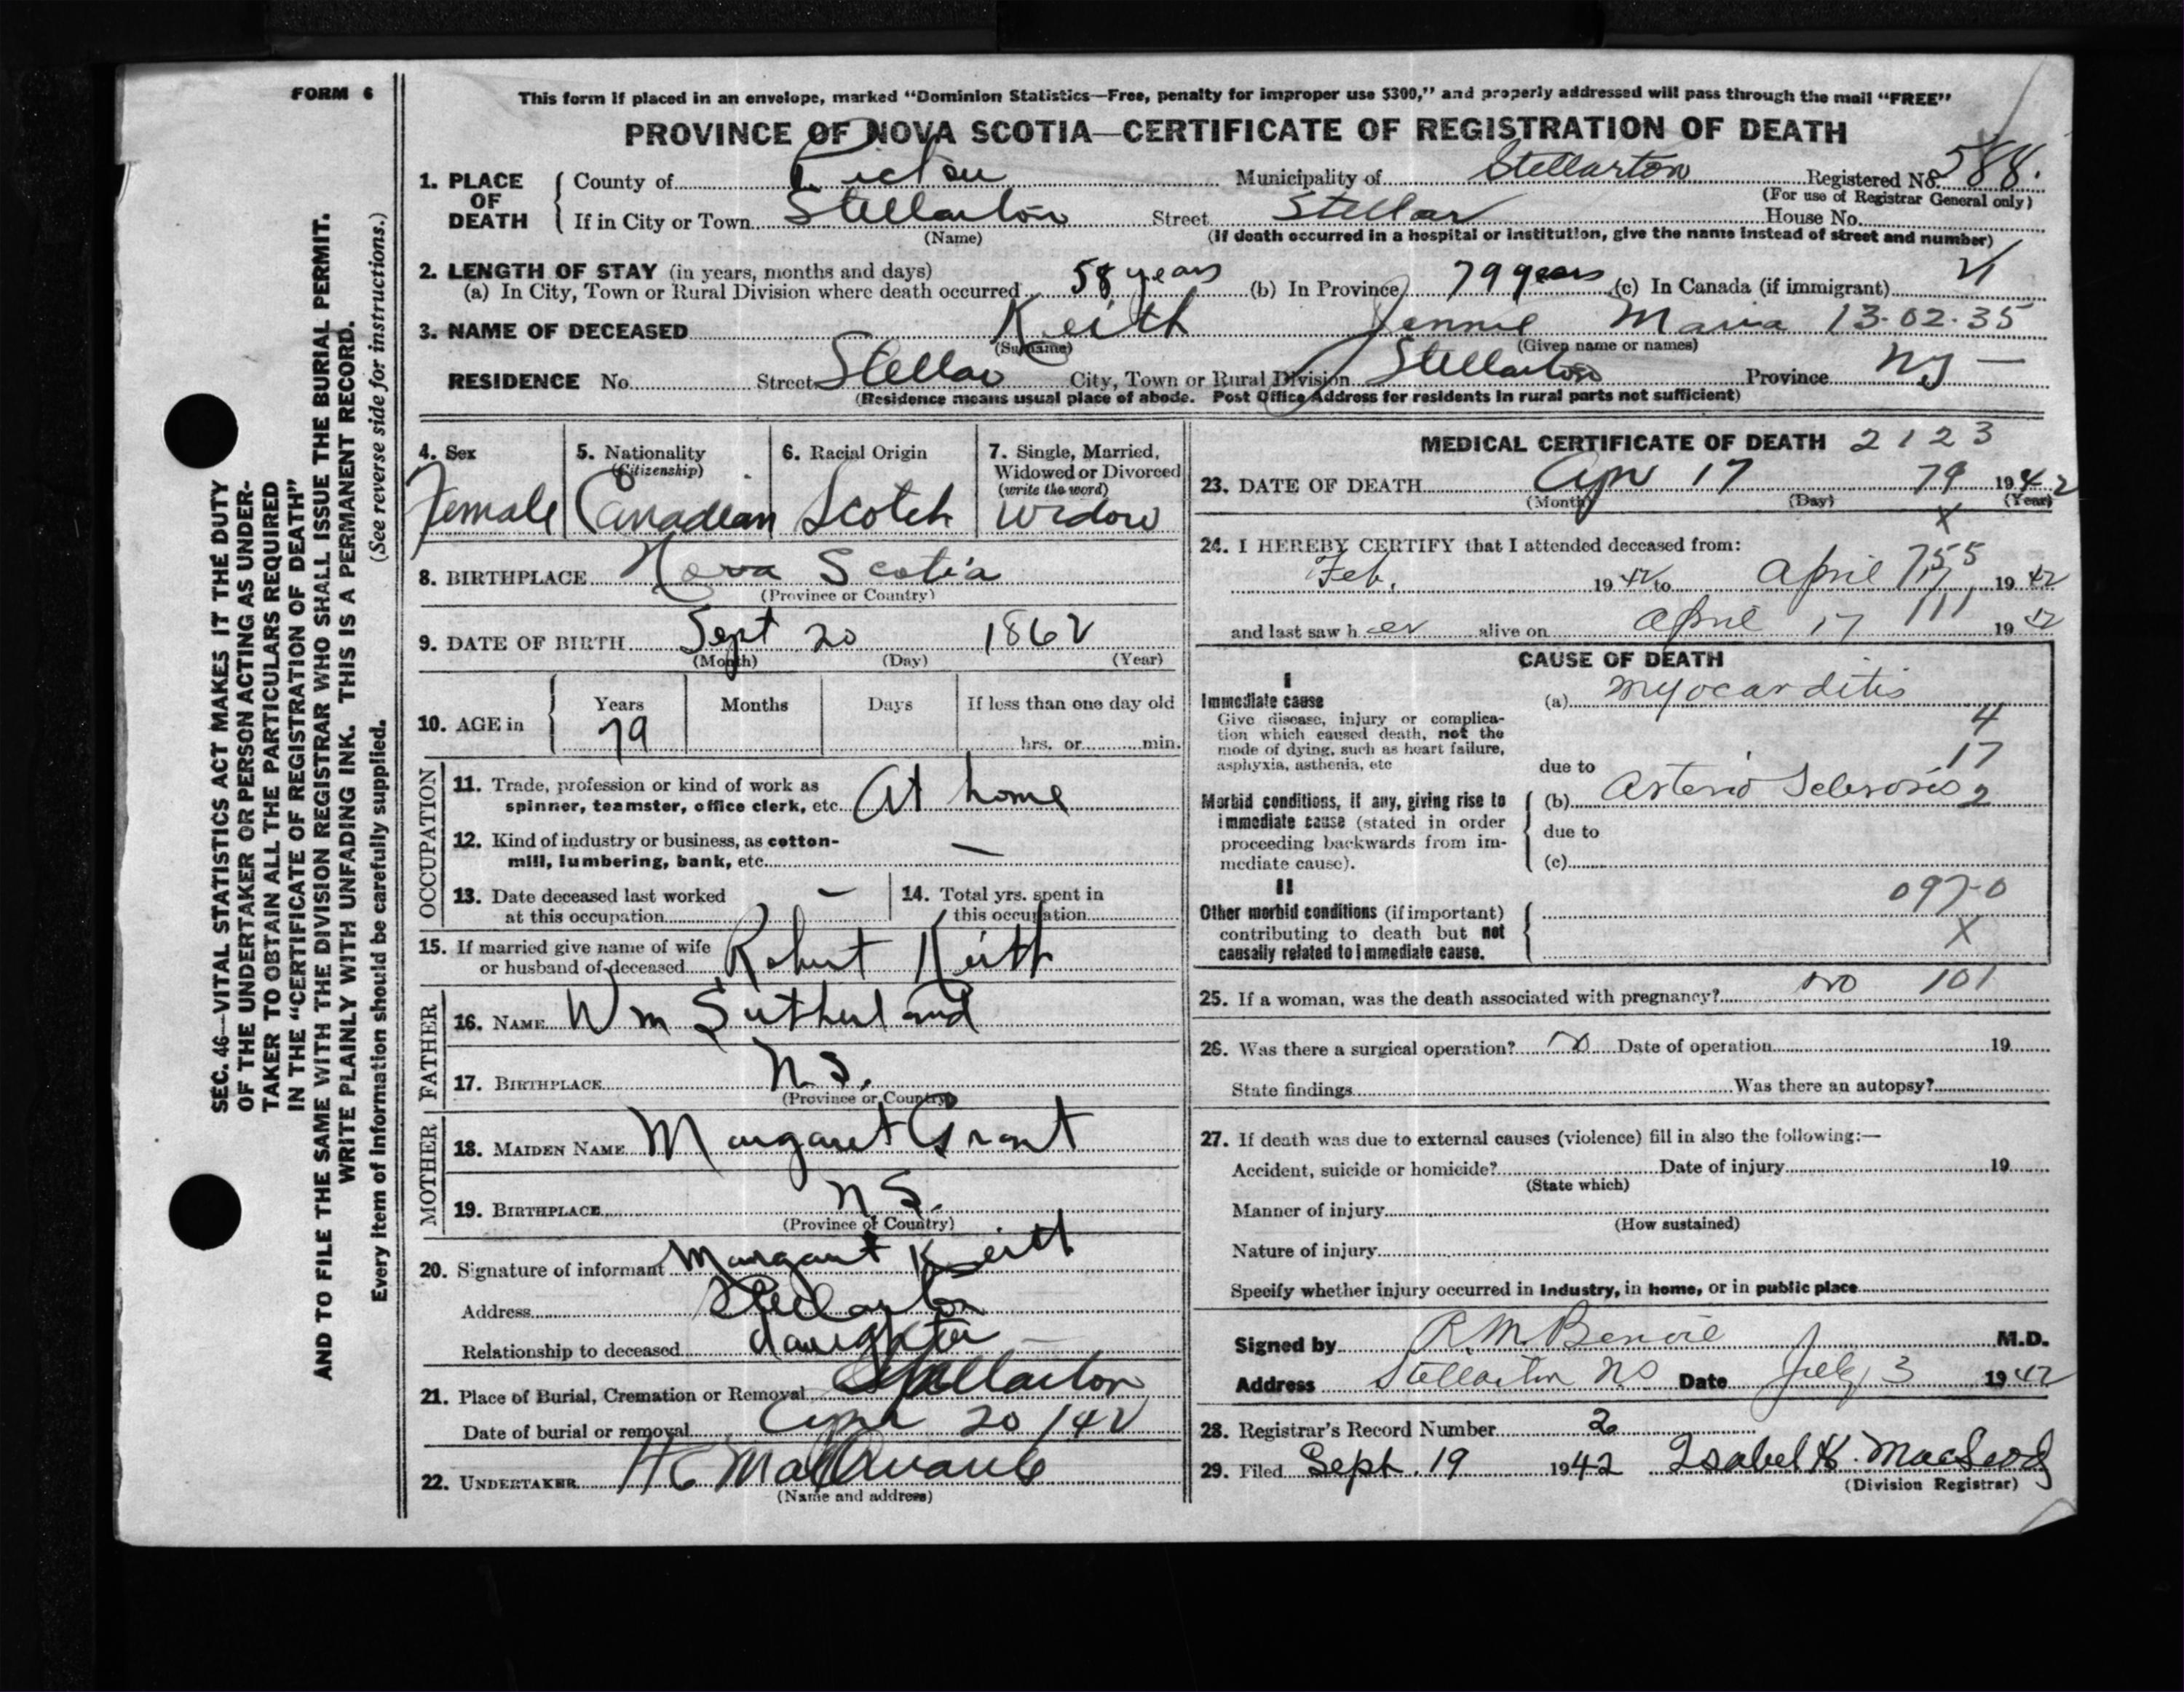 FORM 6
This form if placed in an envelope, marked "Dominion Statistics—Free, penalty for improper use $300," and properly addressed will pass through the mail "FREE"
PROVINCE OF NOVA SCOTIA—CERTIFICATE OF REGISTRATION OF DEATH
1. PLACE OF DEATH
County of Pictou Municipality of Stellarton Registered No. 588.
(For use of Registrar General only)
If in City or Town Stellarton Street Stellar House No.
(Name) (If death occurred in a hospital or institution, give the name instead of street and number)
2. LENGTH OF STAY (in years, months and days)
(a) In City, Town or Rural Division where death occurred 58 years (b) In Province 79 years (c) In Canada (if immigrant)
3. NAME OF DECEASED Keith Jennie Maria 13-02-35
(Surname) (Given name or names)
RESIDENCE No. Street Stellar City, Town or Rural Division Stellarton Province NS —
(Residence means usual place of abode. Post Office Address for residents in rural parts not sufficient)
4. Sex
Female
5. Nationality
(Citizenship)
Canadian
6. Racial Origin
Scotch
7. Single, Married, Widowed or Divorced
(write the word)
Widow
8. BIRTHPLACE Nova Scotia
(Province or Country)
9. DATE OF BIRTH Sept 20 1862
(Month) (Day) (Year)
10. AGE in
Years Months Days If less than one day old
79 hrs. or min.
OCCUPATION
11. Trade, profession or kind of work as
spinner, teamster, office clerk, etc. At home
12. Kind of industry or business, as cotton-
mill, lumbering, bank, etc. —
13. Date deceased last worked
at this occupation —
14. Total yrs. spent in
this occupation
15. If married give name of wife
or husband of deceased Robert Keith
FATHER
16. NAME Wm Sutherland
17. BIRTHPLACE N.S.
(Province or Country)
MOTHER
18. MAIDEN NAME Margaret Grant
19. BIRTHPLACE N S.
(Province of Country)
20. Signature of informant Margaret Keith
Address Stellarton
Relationship to deceased daughter
21. Place of Burial, Cremation or Removal Stellarton
Date of burial or removal Apr 20/42
22. UNDERTAKER
(Name and address)
MEDICAL CERTIFICATE OF DEATH 2123
23. DATE OF DEATH Apr 17 79 1942
(Month) (Day) (Year)
X
24. I HEREBY CERTIFY that I attended deceased from:
755
Feb. 1942 to April 17 1942
111
and last saw her alive on April 17 1942
CAUSE OF DEATH
I
Immediate cause
Give disease, injury or complica-
tion which caused death, not the
mode of dying, such as heart failure,
asphyxia, asthenia, etc
(a) Myocarditis
4
17
2
due to
Morbid conditions, if any, giving rise to
immediate cause (stated in order
proceeding backwards from im-
mediate cause).
(b) Arterio Sclerosis
due to
(c)
II
Other morbid conditions (if important)
contributing to death but not
causally related to immediate cause.
097-0
X
25. If a woman, was the death associated with pregnancy? no 101
26. Was there a surgical operation? no Date of operation 19
State findings Was there an autopsy?
27. If death was due to external causes (violence) fill in also the following:—
Accident, suicide or homicide? Date of injury 19
(State which)
Manner of injury
(How sustained)
Nature of injury
Specify whether injury occurred in Industry, in home, or in public place
Signed by R.M. Benvie M.D.
Address Stellarton NS Date July 3 1942
28. Registrar's Record Number 2
29. Filed Sept. 19 1942 Isabel H. MacLeod
(Division Registrar)
SEC. 46—VITAL STATISTICS ACT MAKES IT THE DUTY
OF THE UNDERTAKER OR PERSON ACTING AS UNDER-
TAKER TO OBTAIN ALL THE PARTICULARS REQUIRED
IN THE "CERTIFICATE OF REGISTRATION OF DEATH"
AND TO FILE THE SAME WITH THE DIVISION REGISTRAR WHO SHALL ISSUE THE BURIAL PERMIT.
WRITE PLAINLY WITH UNFADING INK. THIS IS A PERMANENT RECORD.
Every item of information should be carefully supplied. (See reverse side for instructions.)